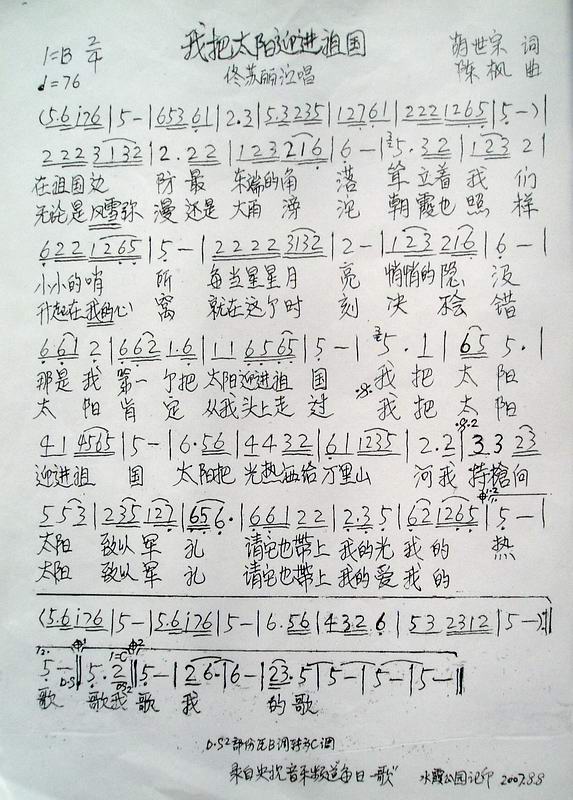 我把太阳迎进祖国
1=B 2/4
♩=76
佟苏丽演唱
胡世宗 词
陈枫 曲
(5.6 i76 | 5 - | 653 61 | 2.3 | 5.3235 | 12761 | 222 1265 | 5 - ) |
222 3132 | 2.22 | 123 216 | 6 - | 5.32 | 123 2 |
在祖国边 防最 东端的角 落 耸立着我 们
无论是风雪弥 漫还是 大雨滂 沱 朝霞也照 样
622 1265 | 5 - | 2222 3132 | 2 - | 123 216 | 6 - |
小小的哨 所 每当星星月 亮 悄悄的隐 没
升起在我的心 窝 就在这个时 刻 决不会 错
661 2 | 662 1.6 | 11 6565 | 5 - | 5.1 | 65 5. |
那是我 第一个把 太阳迎进祖 国 我把太阳
太阳肯定 从我头上走过 我把太阳
41 4565 | 5 - | 6.56 | 4432 | 61 1235 | 2.2 | 33 23 |
迎进祖 国 太阳把 光热洒给 万里山 河我 持槍向
553 | 235 127 | 656. | 661 22 | 2.35 | 62 1265 | 5 - |
太阳 致以军 礼 请它也带上 我的光 我的 热
太阳 致以军 礼 请它也带上 我的爱 我的
(5.6 i76 | 5 - | 5.6 i76 | 5 - | 6.56 | 432 6 | 53 2312 | 5 - ) :||
5 - || 5.2 || 5 - | 26. | 6 - | 23.5 | 5 - | 5 - | 5 - ||
D.S 1=C D.S2
歌 歌我 歌 我 的歌
D.S2部份在B调转C调
录自央视音乐频道每日一歌"
水霞公园记印 2007.8.8